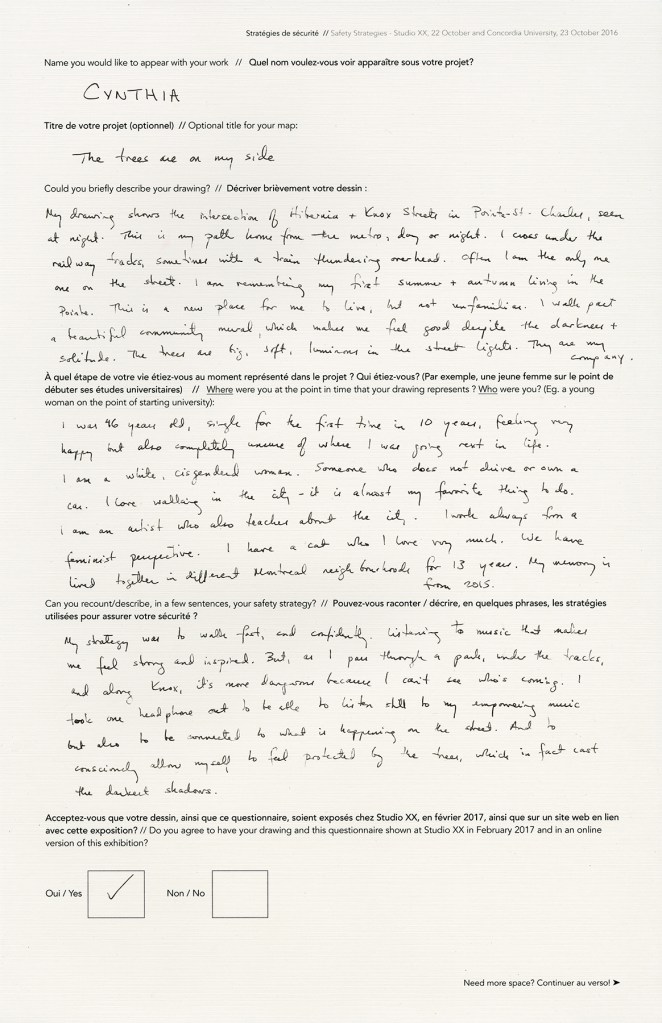 Stratégies de sécurité // Safety Strategies - Studio XX, 22 October and Concordia University, 23 October 2016
Name you would like to appear with your work // Quel nom voulez-vous voir apparaître sous votre projet?
CYNTHIA
Titre de votre projet (optionnel) // Optional title for your map:
The trees are on my side
Could you briefly describe your drawing? // Décriver brièvement votre dessin :
My drawing shows the intersection of Hibernia + Knox Streets in Pointe-St-Charles, seen
at night. This is my path home from the metro, day or night. I cross under the
railway tracks, sometimes with a train thundering overhead. Often I am the only
one on the street. I am remembering my first summer + autumn living in the
Pointe. This is a new place for me to live, but not unfamiliar. I walk past
a beautiful community mural, which makes me feel good despite the darkness +
solitude. The trees are big, soft, luminous in the street lights. They are my
company.
À quel étape de votre vie étiez-vous au moment représenté dans le projet ? Qui étiez-vous? (Par exemple, une jeune femme sur le point de
débuter ses études universitaires) // Where were you at the point in time that your drawing represents ? Who were you? (Eg. a young
woman on the point of starting university):
I was 46 years old, single for the first time in 10 years, feeling very
happy but also completely unsure of where I was going next in life.
I am a white, cisgendered woman. Someone who does not drive or own a
car. I love walking in the city - it is almost my favorite thing to do.
I am an artist who also teaches about the city. I work always from a
feminist perspective. I have a cat who I love very much. We have
lived together in different Montreal neighbourhoods for 13 years. My memory is
from 2015.
Can you recount/describe, in a few sentences, your safety strategy? // Pouvez-vous raconter / décrire, en quelques phrases, les stratégies
utilisées pour assurer votre sécurité ?
My strategy was to walk fast, and confidently. Listening to music that makes
me feel strong and inspired. But, as I pass through a park, under the tracks,
and along Knox, it's more dangerous because I can't see who's coming. I
took one headphone out to be able to listen still to my empowering music
but also to be connected to what is happening on the street. And to
consciously allow myself to feel protected by the trees, which in fact cast
the darkest shadows.
Acceptez-vous que votre dessin, ainsi que ce questionnaire, soient exposés chez Studio XX, en février 2017, ainsi que sur un site web en lien
avec cette exposition? // Do you agree to have your drawing and this questionnaire shown at Studio XX in February 2017 and in an online
version of this exhibition?
Oui / Yes ✓ Non / No
Need more space? Continuer au verso! ➤